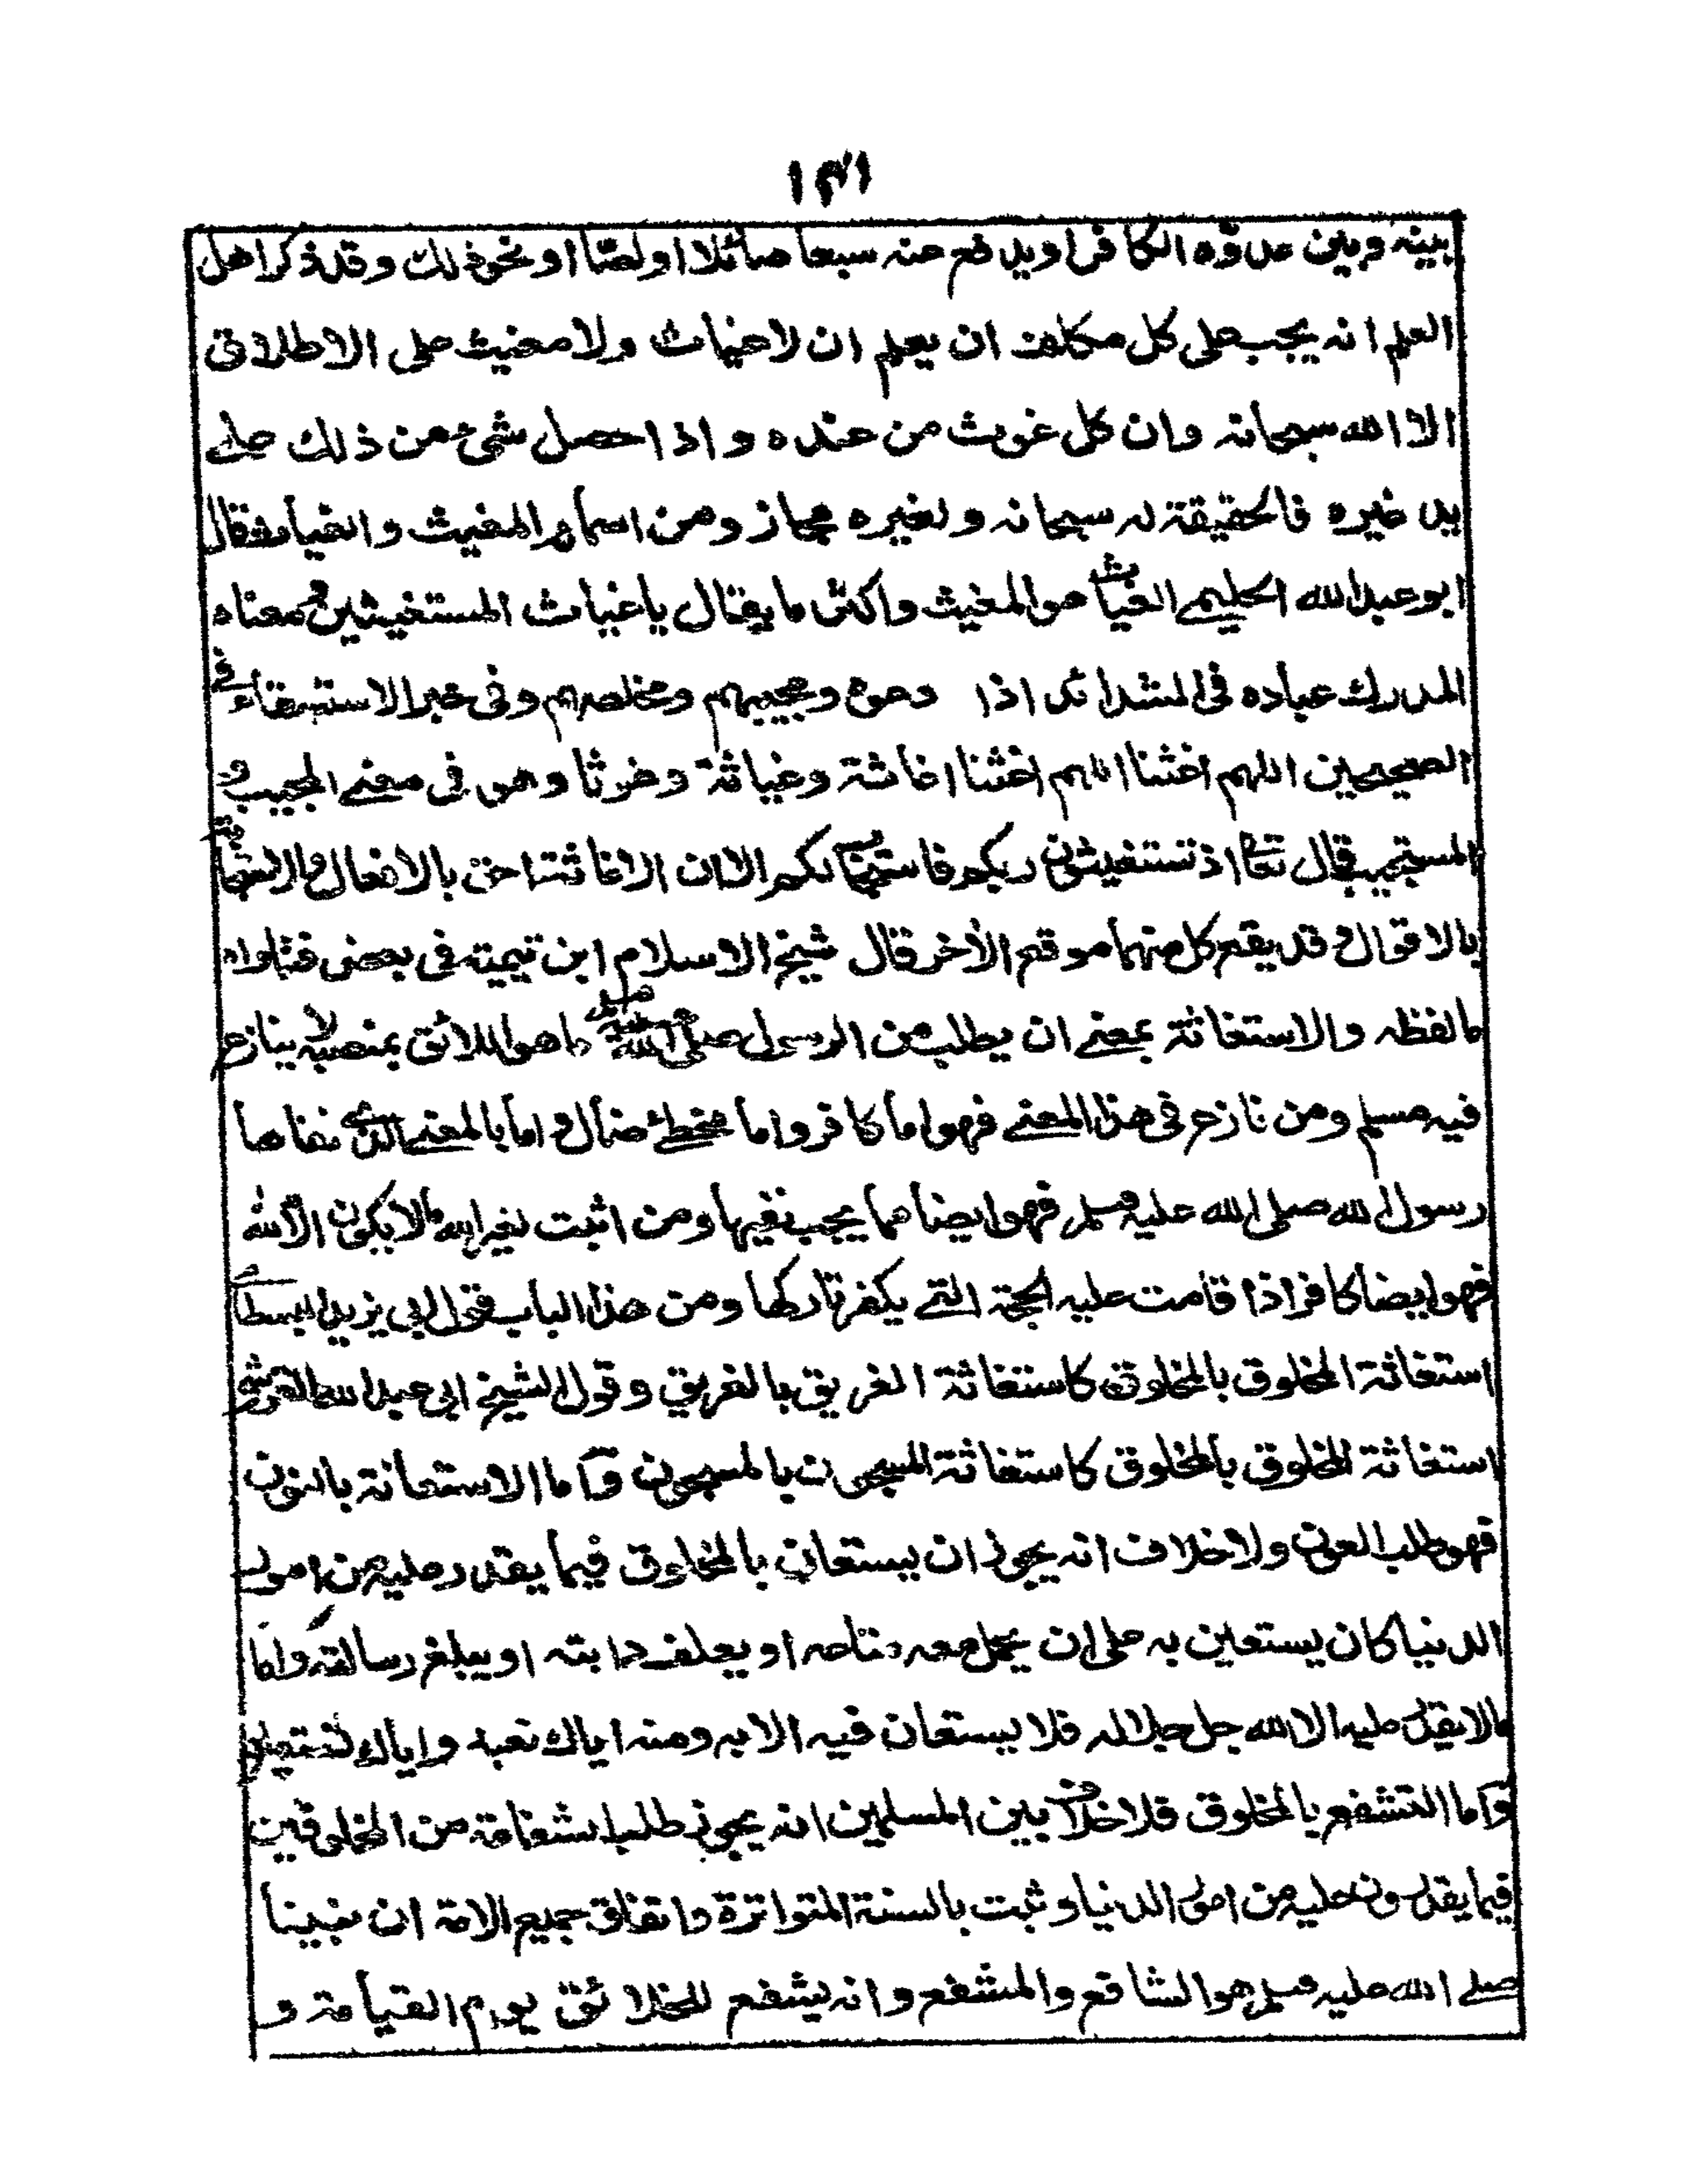 ١٣١
بينه وبين عدوّه الكافر او يدفع عنه سبعا صائلا او لصّا او نحو ذلك وقد ذكر اهل
العلم انه يجب على كل مكلف ان يعلم ان لا غياث ولا مغيث على الاطلاق
الا الله سبحانه وان كل غوث من عنده واذا حصل شئ من ذلك على
يد غيره فالحقيقة له سبحانه ولغيره مجاز ومن اسمائه المغيث والغياث قال
ابو عبد الله الحليمي الغياث هو المغيث واكثر ما يقال يا غياث المستغيثين ومعناه
المدرك عباده في الشدائد اذا دعوه ومجيبهم ومخلصهم وفى خبر الاستسقاء في
الصحيحين اللهم اغثنا اللهم اغثنا اغاثة وغياثة وغوثا وهو فى معنى المجيب و
المستجيب قال تعا اذ تستغيثون ربكم فاستجاب لكم الا ان الاغاثة احق بالافعال والاستجابة
بالاقوال وقد يقع كل منهما موقع الأخر قال شيخ الاسلام ابن تيمية فى بعض فتاواه
ما لفظه والاستغاثة بمعنى ان يطلب من الرسول صلى الله عليه وسلم ما هو اللائق بمنصبه لا ينازع
فيه مسلم ومن نازع فى هذا المعنى فهو اما كافر واما مخطئ ضال واما بالمعنى الذي نفاها
رسول الله صلى الله عليه وسلم فهو ايضا مما يجب نفيها ومن اثبت لغير الله ما لا يكون الا لله
فهو ايضا كافر اذا قامت عليه الحجة التي يكفر تاركها ومن هذا الباب قول ابي يزيد البسطا
استغاثة المخلوق بالمخلوق كاستغاثة الغريق بالغريق وقول الشيخ ابي عبد الله القرشي
استغاثة المخلوق بالمخلوق كاستغاثة المسجون بالمسجون وأما الاستعانة بالنون
فهو طلب العون ولا خلاف انه يجوز ان يستعان بالمخلوق فيما يقدر عليه من امور
الدنيا كان يستعين به على ان يحمل معه متاعه او يعلف دابته او يبلغ رسالته واما
مالا يقدر عليه الا الله جل جلاله فلا يستعان فيه الا به ومنه اياك نعبد واياك نستعين
وأما التشفع بالمخلوق فلا خلاف بين المسلمين انه يجوز طلب الشفاعة من المخلوقين
فيما يقدرون عليه من امور الدنيا وثبت بالسنة المتواترة واتفاق جميع الامة ان نبينا
صلى الله عليه وسلم هو الشافع والمشفع وانه يشفع للخلائق يوم القيامة و